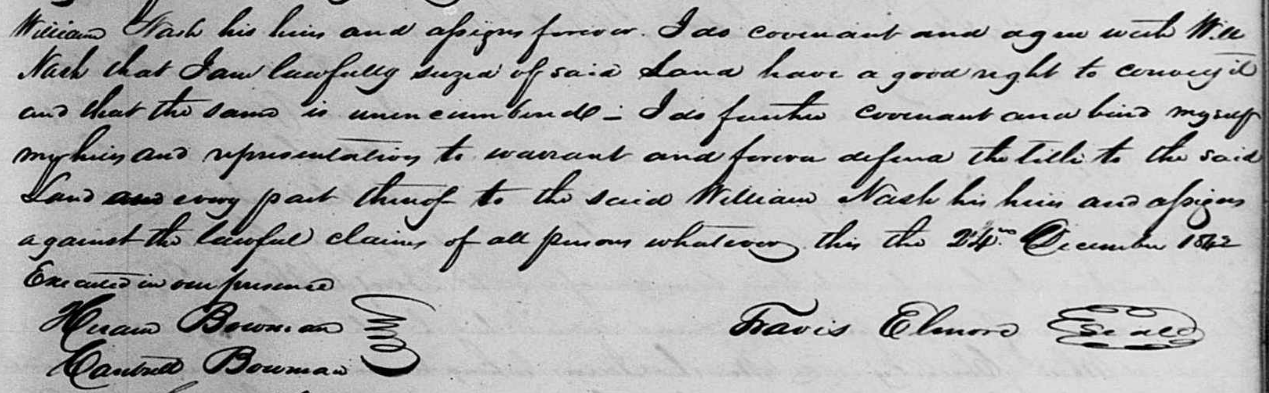 William Nash his heirs and assigns forever. I do covenant and agree with Will
Nash that I am lawfully seized of said Land have a good right to convey it
and that the same is unencumbered – I do further covenant and bind myself
my heirs and representatives to warrant and forever defend the title to the said
Land and every part thereof to the said William Nash his heirs and assigns
against the lawful claims of all persons whatever this the 24th December 1842
Executed in our presence
Hiram Bowman
Travis Elmore Seald
Cantrell Bowman